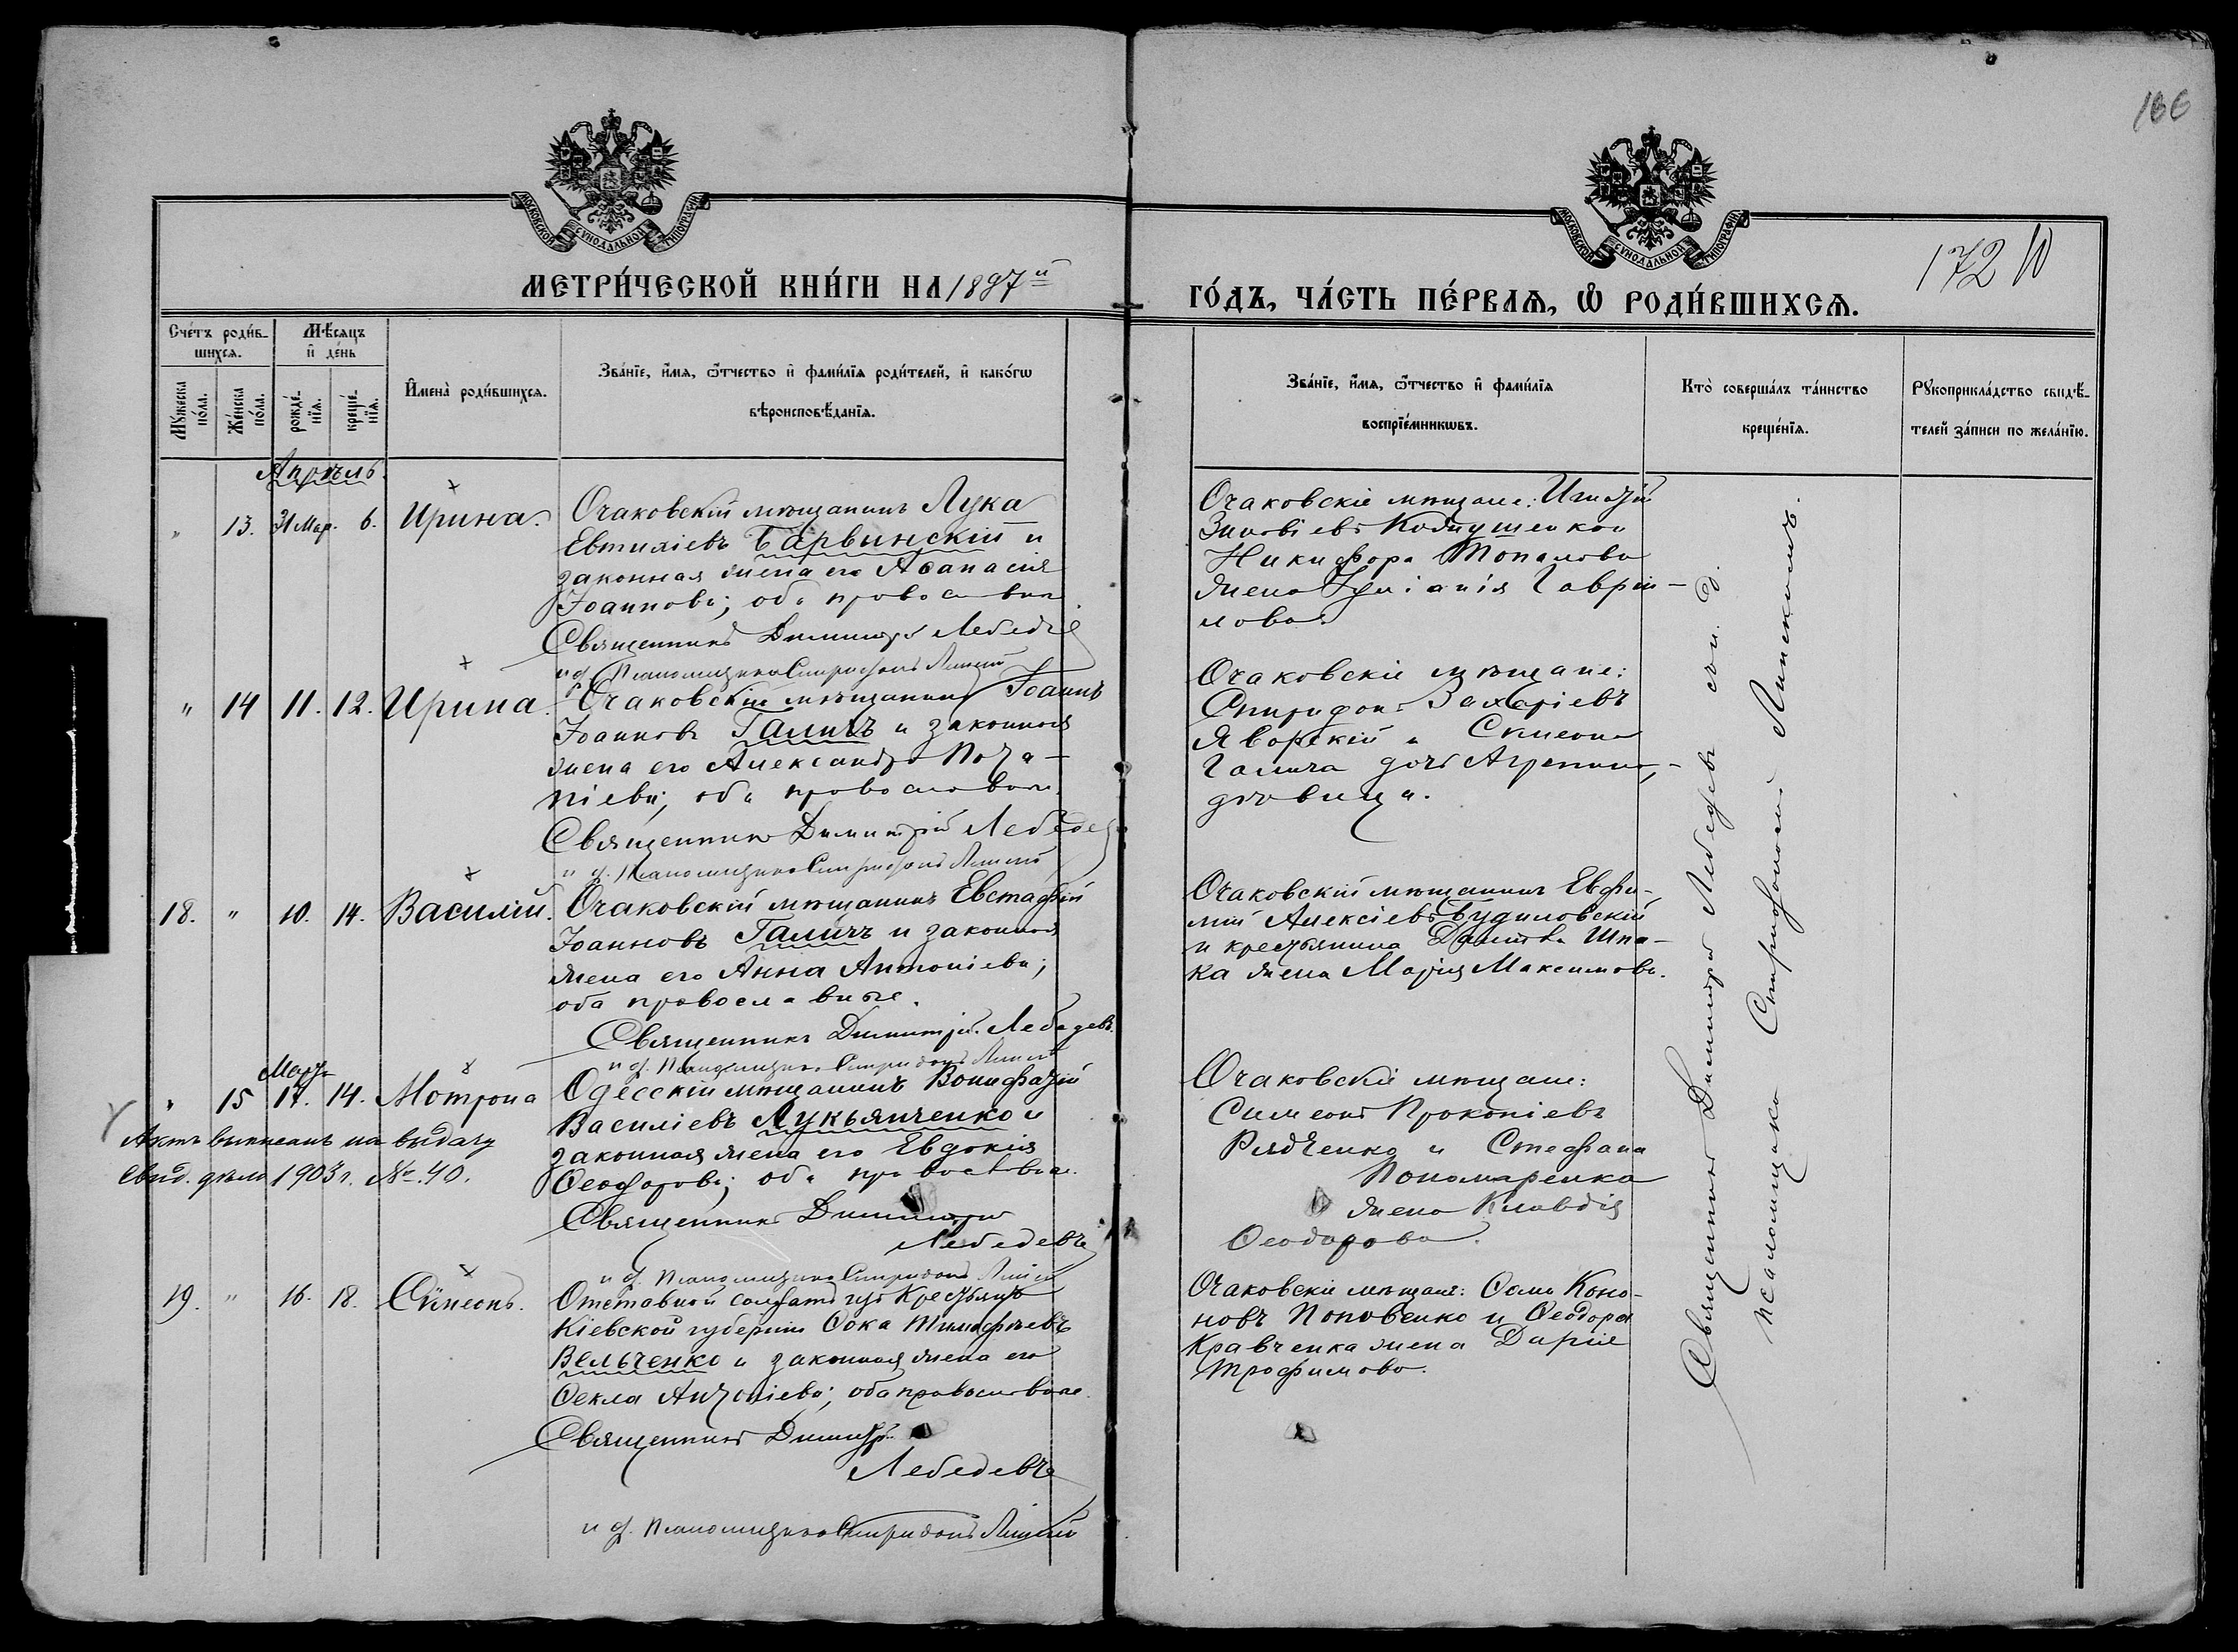 166
МОСКОВСКОЙ СѴНОДАЛЬНОЙ ТИПОГРАФІИ
МОСКОВСКОЙ СѴНОДАЛЬНОЙ ТИПОГРАФІИ
172
МЕТРИ́ЧЕСКОЙ КНИ́ГИ НА 1897й
ГО́ДЪ, ЧА́СТЬ ПЕ́РВАѦ, Ѡ РОДИ́ВШИХСѦ.
Сче́тъ роди́в-
шихсѧ.
Мѣ́сяцъ
и҆ де́нь
Мꙋ́жеска по́ла.
Же́нска по́ла.
рожде́-
нїѧ.
креще́-
нїѧ.
И҆мена̀ роди́вшихсѧ.
Зва́нїе, и҆́мѧ, ѻ҆́тчество и҆ фами́лїѧ роди́телей, и҆ како́гѡ
вѣроисповѣ́данїѧ.
Зва́нїе, и҆́мѧ, ѻ҆́тчество и҆ фами́лїѧ
воспрїе́мникѡвъ.
Кто̀ соверша́лъ та́инство
креще́нїѧ.
Рꙋкоприкла́дство свидѣ́-
телей за́писи по жела́нїю.
Апрѣль.
" 13. 31 Мар. 6. Ирина.
Очаковскій мѣщанинъ Лука
Евтихіевъ Барвынскій и
законная жена его Аѳанасія
Іоаннова; оба православн.
Священникъ Димитрій Лебедевъ
и д. Псаломщика Спиридонъ
Очаковскіе мѣщане: Игнатій
Зиновіевъ и
Никифора Топалова
жена Гаврі-
лова.
" 14 11. 12. Ирина.
Очаковскій мѣщанинъ Іоаннъ
Іоанновъ Галичъ и законная
жена его Александра Пота-
піева; оба православн.
Священникъ Димитрій Лебедевъ
и д. Псаломщика Спиридонъ
Очаковскіе мѣщане:
Спиридонъ Захаріевъ
Яворскій и Симеона
Галича дочь Агрепина,
дѣвица.
18. " 10. 14. Василій.
Очаковскій мѣщанинъ Евстафій
Іоанновъ Галичъ и законная
жена его Анна Антоніева;
оба православные.
Священникъ Димитрій Лебедевъ.
и д. Псаломщика Спиридонъ
Очаковскій мѣщанинъ Евфи-
мій Алексіевъ Будиловскій
и крестьянина Даніила Шпа-
ка жена Марія Максимова.
Март.
" 15 17. 14. Мотрона
Актъ выписанъ на выдачу
свид. дѣло 1903 г. №. 40.
Одесскій мѣщанинъ Вонифатій
Василіевъ Лукьянченко и
законная жена его Евдокія
Ѳеодорова; оба православн.
Священникъ Димитрій
Лебедевъ
и д. Псаломщика Спиридонъ
Очаковскіе мѣщане:
Симеонъ Прокопіевъ
Рядченко и Стефана
Пономаренка
жена Клавдія
Ѳеодорова.
19. " 16. 18. Сѵмеонъ.
Отставной солдатъ изъ крестьянъ
Кіевской губерніи Ѳока Тимофѣевъ
Вельченко и законная жена его
Ѳекла Антоніева; оба православные.
Священникъ Димитрій
Лебедевъ
и д. Псаломщика Спиридонъ
Очаковскіе мѣщане: Ѳома Коно-
новъ Поповенко и Ѳеодора
Кравченка жена Дарія
Трофимова.
Священникъ Димитрій Лебедевъ съ и. д.
псаломщика Спиридономъ